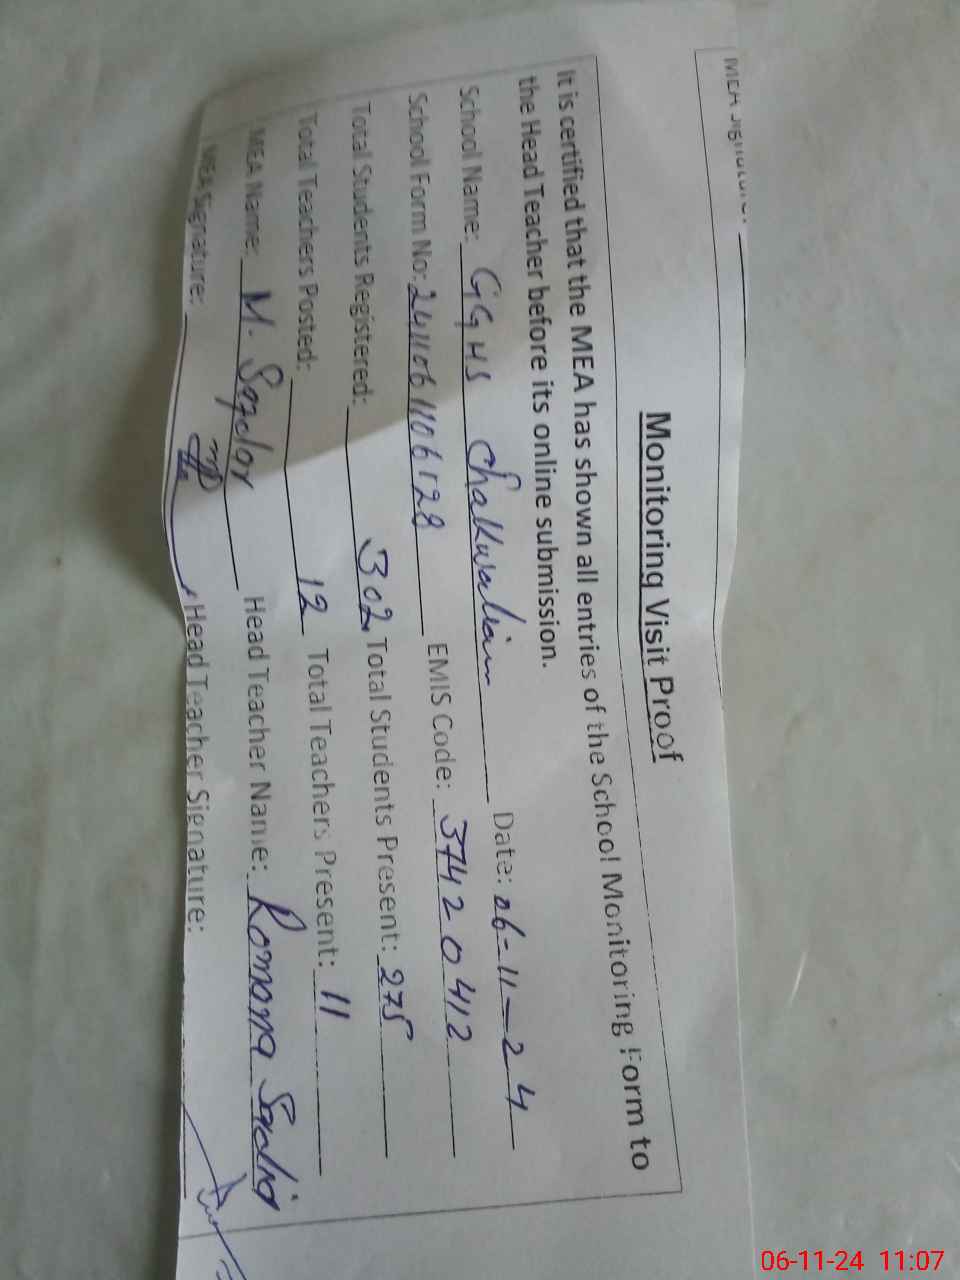 MEA Signature:
Monitoring Visit Proof
It is certified that the MEA has shown all entries of the School Monitoring Form to
the Head Teacher before its online submission.
School Name: GGHS Chakwalian Date: 06-11-24
School Form No: 241106 1106128 EMIS Code: 37420412
Total Students Registered: 302 Total Students Present: 275
Total Teachers Posted: 12 Total Teachers Present: 11
MEA Name: M. Head Teacher Name: Romana
MEA Signature: Head Teacher Signature:
06-11-24 11:07